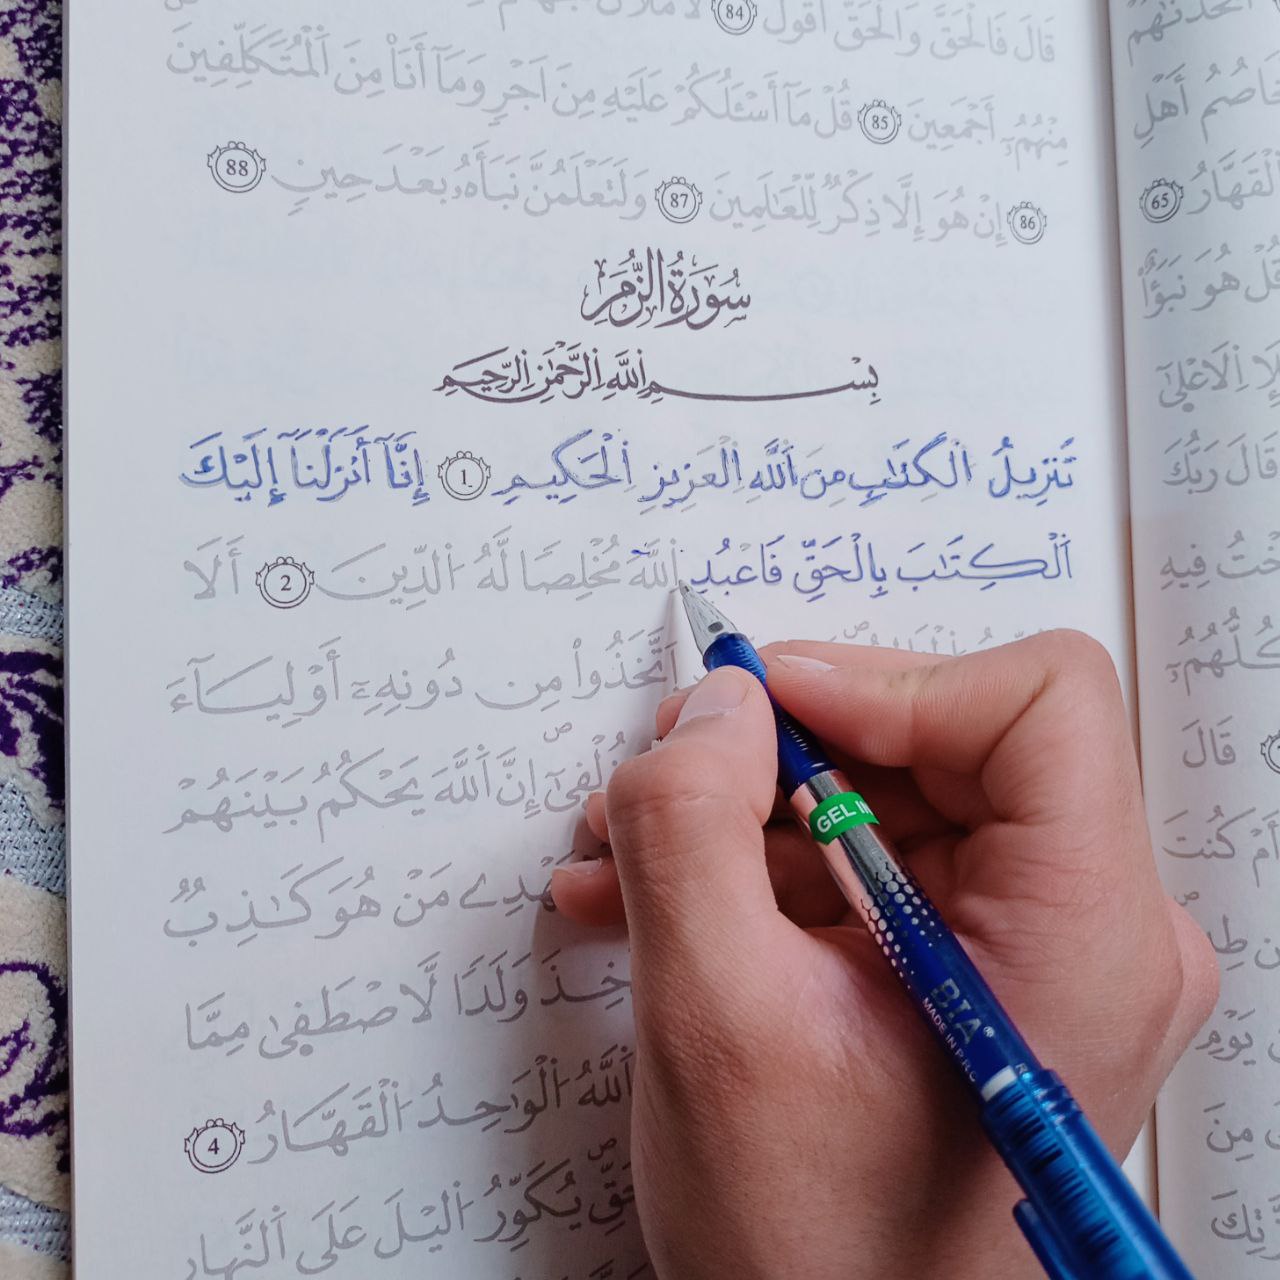 قَالَ فَالْحَقَّ وَالْحَقَّ أَقُولُ 84
مِنْهُمُۥٓ أَجْمَعِينَ 85 قُلْ مَآ أَسْـَٔلُكُمْ عَلَيْهِ مِنَ اَجْرٖ وَمَآ أَنَا۠ مِنَ اَ۬لْمُتَكَلِّفِينَ
86 إِنْ هُوَ إِلَّا ذِكْرٞ لِّلْعَٰلَمِينَ 87 وَلَتَعْلَمُنَّ نَبَأَهُۥ بَعْدَ حِينِۢ 88
سُورَةُ الزُّمَرِ
بِسْمِ اِ۬للَّهِ اِ۬لرَّحْمَٰنِ اِ۬لرَّحِيمِ
تَنزِيلُ اُ۬لْكِتَٰبِ مِنَ اَ۬للَّهِ اِ۬لْعَزِيزِ اِ۬لْحَكِيمِ 1 إِنَّآ أَنزَلْنَآ إِلَيْكَ
اَ۬لْكِتَٰبَ بِالْحَقِّ فَاعْبُدِ اِ۬للَّهَ مُخْلِصاٗ لَّهُ اُ۬لدِّينَ 2 أَلَا
اَ۪تَّخَذُواْ مِن دُونِهِۦٓ أَوْلِيَآءَ
زُلْفۭيٰٓ إِنَّ اَ۬للَّهَ يَحْكُمُ بَيْنَهُمْ
يَهْدِے مَنْ هُوَ كَٰذِبٞ
وَلَداٗ لَّاصْطَفۭيٰ مِمَّا
اَ۬للَّهُ اُ۬لْوَٰحِدُ اُ۬لْقَهَّارُ 4
يُكَوِّرُ اُ۬ليْلَ عَلَى اَ۬لنَّهارِ
أَهْلِ
65
قُلْ هُوَ نَبَؤٌاْ
اِ۬لَاعْلۭيٰٓ
قَالَ رَبُّكَ
فِيهِ
كُلُّهُمُۥٓ
قَالَ
أَمْ كُنتَ
يَوْمِ
مِنَ
GEL IN
BTA®
MADE IN P.R.C